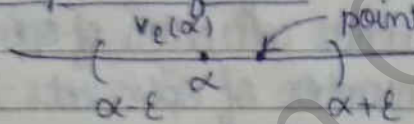 Vε(α) point
α
α-ε α+ε